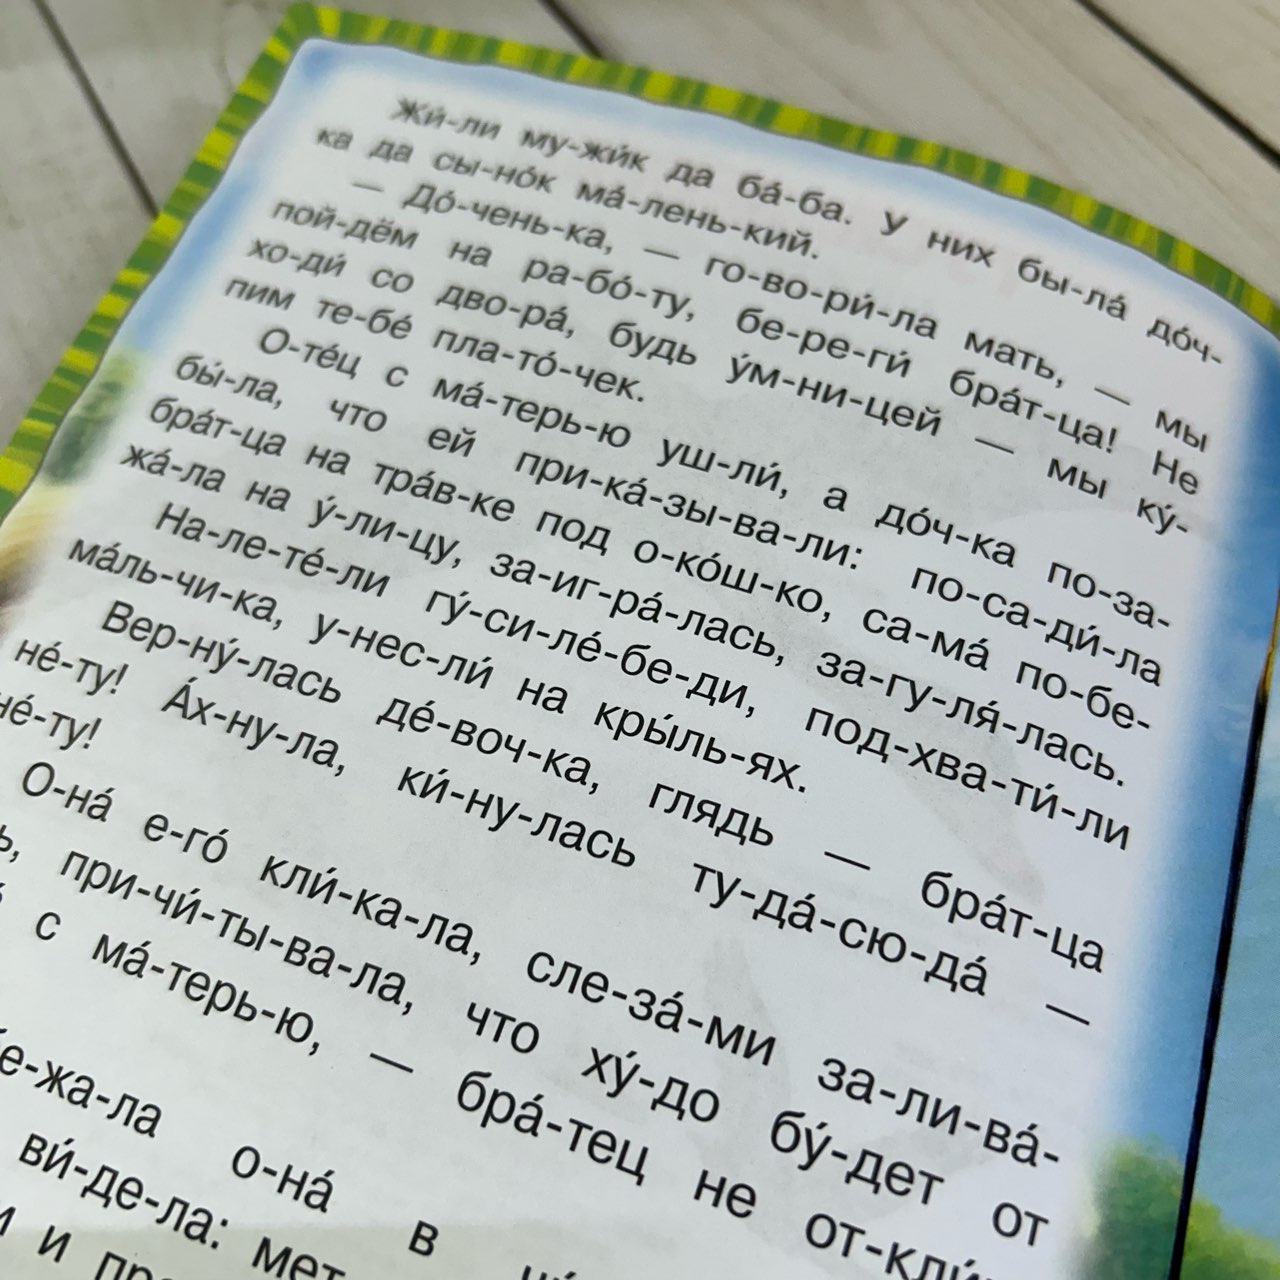 Жи́-ли му-жи́к да ба́-ба. У них бы-ла́ до́ч-
ка да сы-но́к ма́-лень-кий.
— До́-чень-ка, — го-во-ри́-ла мать, — мы
пой-дём на ра-бо́-ту, бе-ре-ги́ бра́т-ца! Не
хо-ди́ со дво-ра́, будь у́м-ни-цей — мы ку́-
пим те-бе́ пла-то́-чек.
О-те́ц с ма́-терь-ю уш-ли́, а до́ч-ка по-за-
бы́-ла, что ей при-ка́-зы-ва-ли: по-са-ди́-ла
бра́т-ца на тра́в-ке под о-ко́ш-ко, са-ма́ по-бе-
жа́-ла на у́-ли-цу, за-иг-ра́-лась, за-гу-ля́-лась.
На-ле-те́-ли гу́-си-ле́-бе-ди, под-хва-ти́-ли
ма́ль-чи-ка, у-нес-ли́ на кры́ль-ях.
Вер-ну́-лась де́-воч-ка, глядь — бра́т-ца
не́-ту! А́х-ну-ла, ки́-ну-лась ту-да́-сю-да́ —
не́-ту!
О-на́ е-го́ кли́-ка-ла, сле-за́-ми за-ли-ва́-
при-чи́-ты-ва-ла, что ху́-до бу́-дет от
с ма́-терь-ю, — бра́-тец не от-кли́
е-жа-ла о-на́ в
ви́-де-ла: мет
и